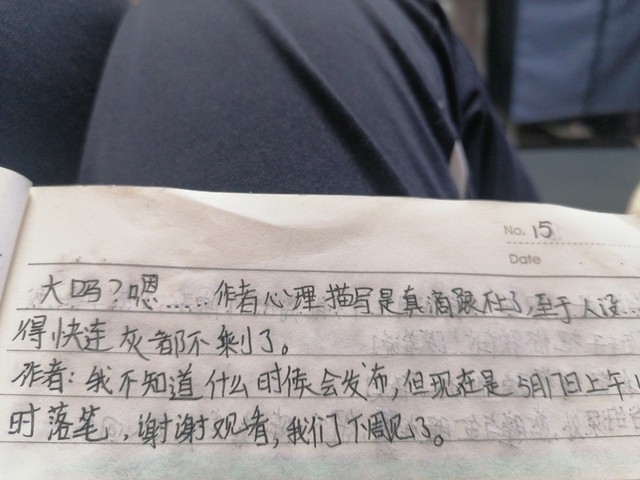 No. 15
Date
大吗？嗯……作者心理描写是真滴跟不上了，至于人设…
得快连灰都不剩了。
作者：我不知道什么时候会发布，但现在是5月17日上午
时落笔，谢谢观看，我们下周见了。